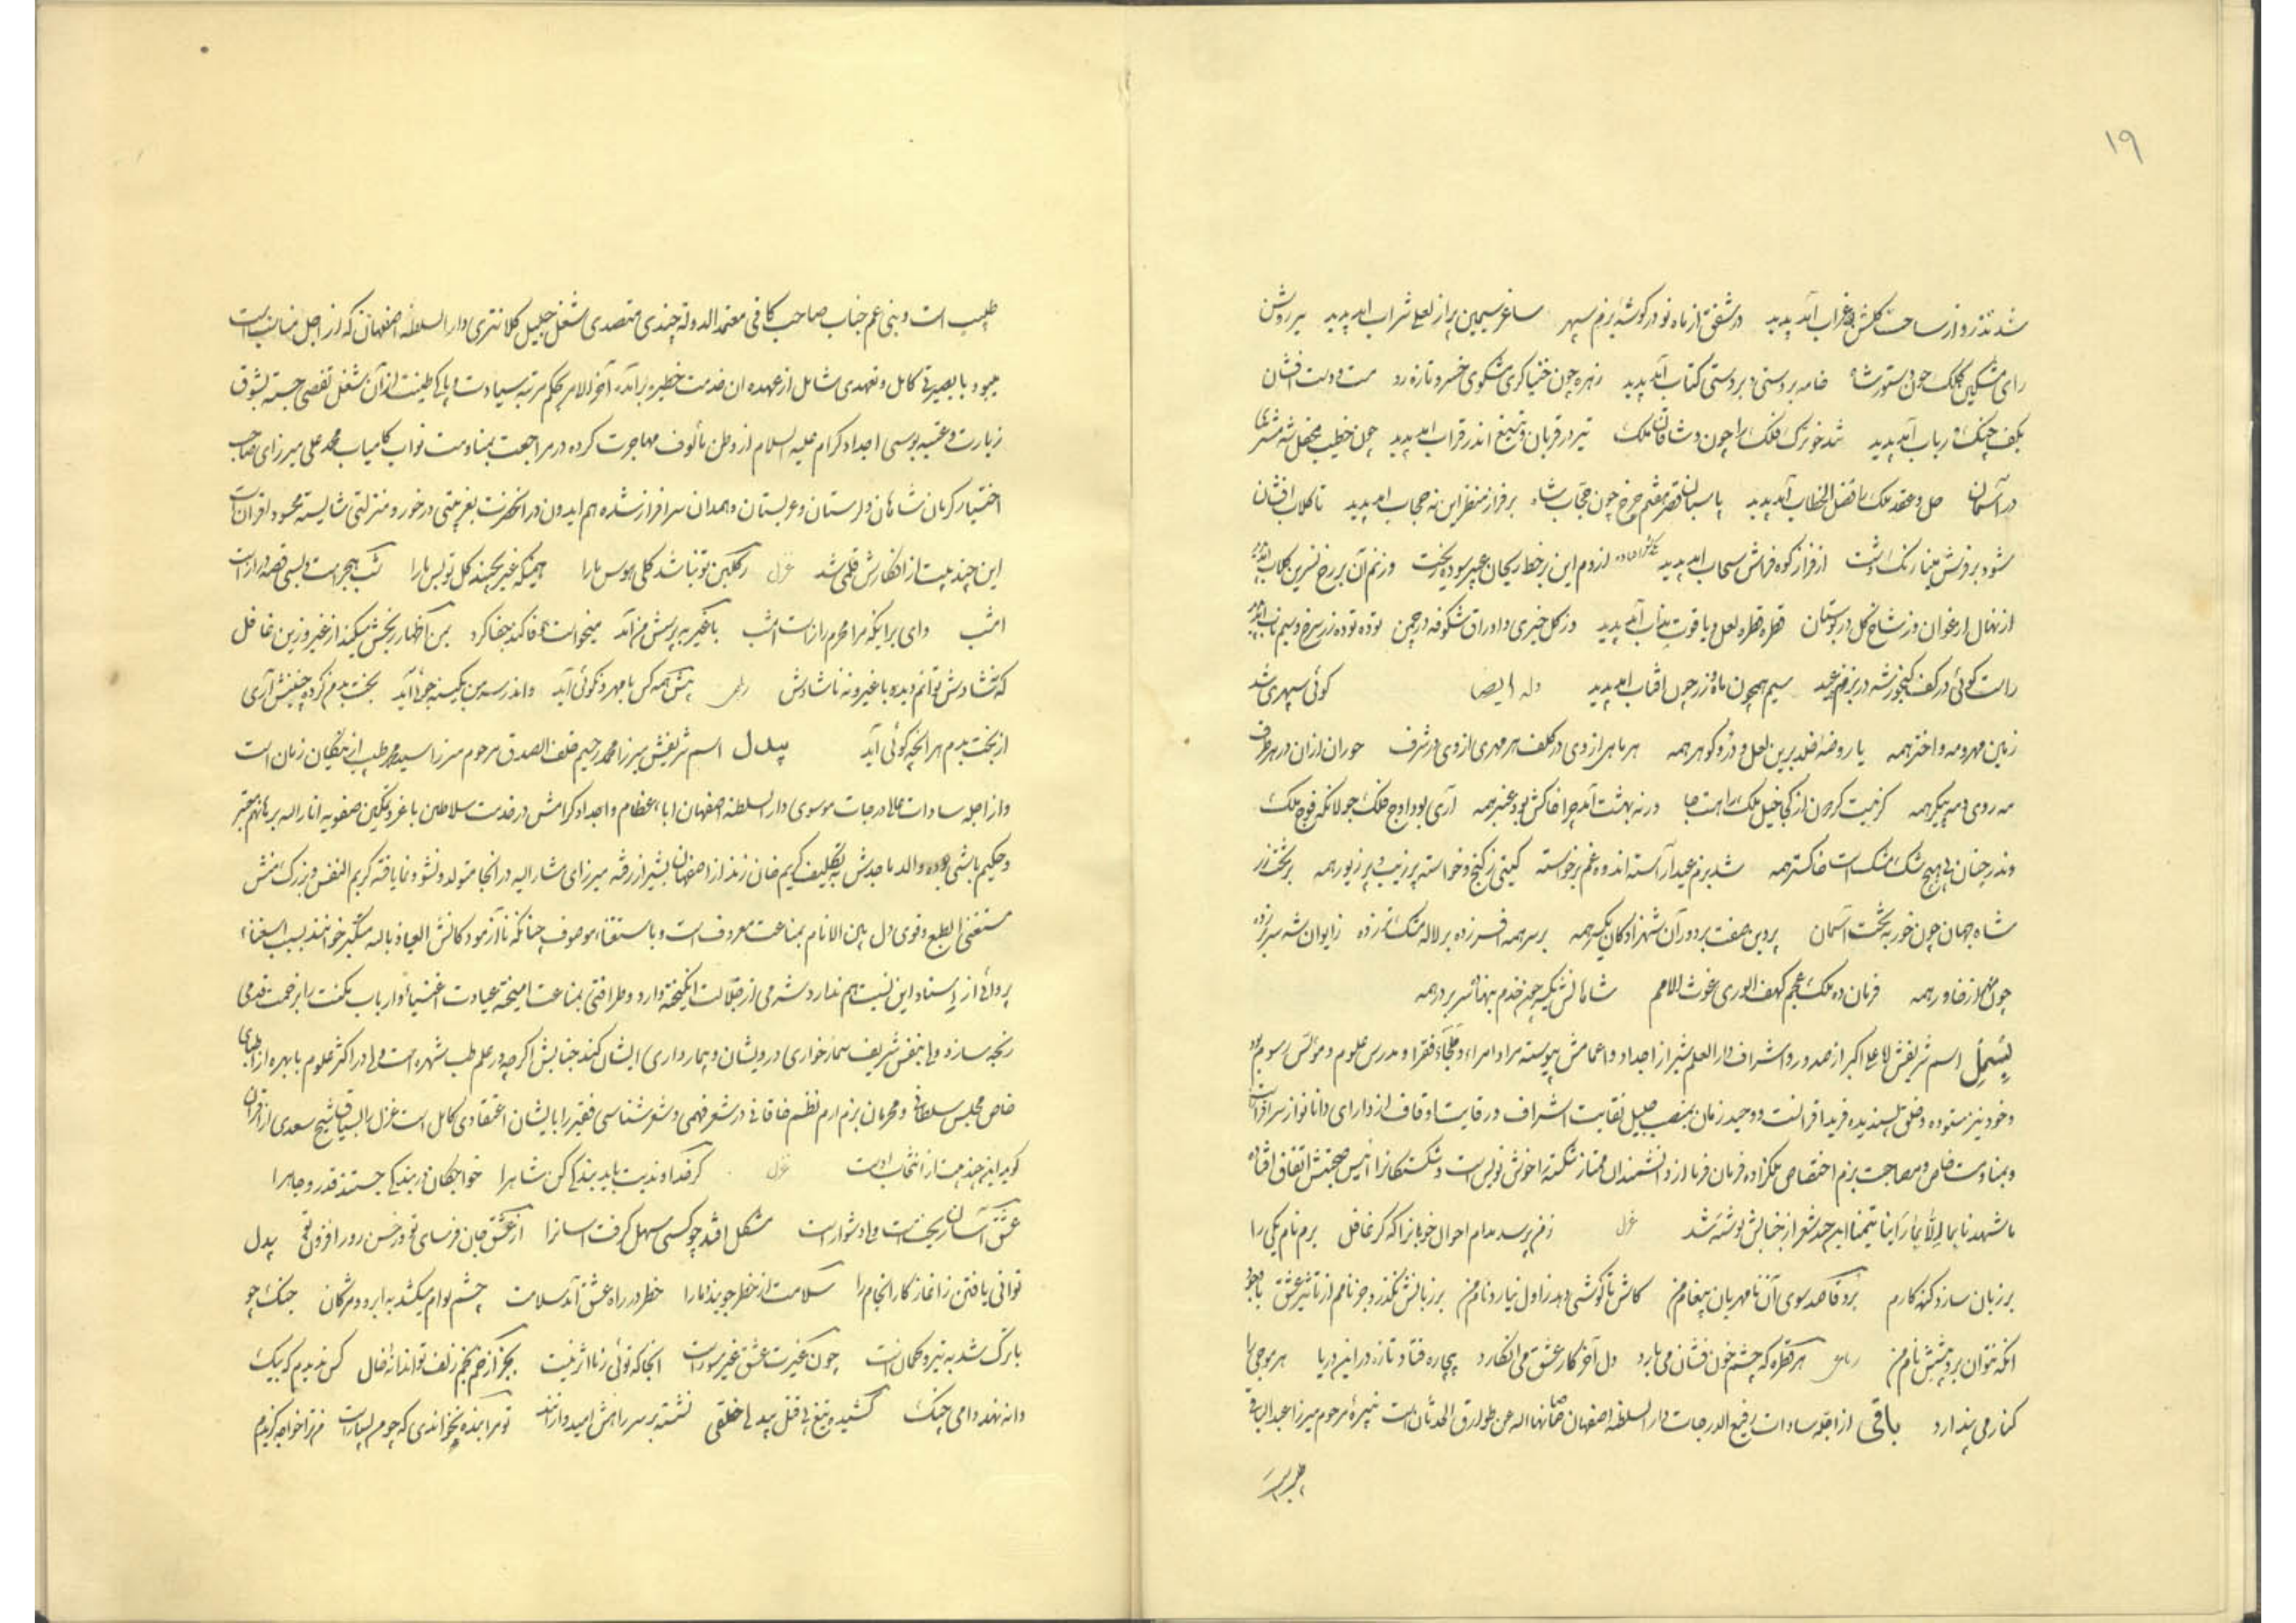 ۱۹
شد تذرو از ساحت گلشن غراب آمد پدید در شفق از ماه نو در گوشه بزم سپهر ساغر سیمین پر از لعلی شراب آمد پدید بر روش
رای مشکین کلک چون دستور شاه خامه بر دستی و بر دستی کتاب آمد پدید زهره چون خنیاگری مشکوی خسرو تازه رو مست و دست افشان
بکف چنگ و رباب آمد پدید شد خور ترک فلک را چون وشاقان ملک تیر در قربان و تیغ اندر قراب آمد پدید چون خطیب محفل شه مشتری
در آسمان حل و عقد ملک را فصل الخطاب آمد پدید پاسبان قصر هفتم چرخ چون حجاب شاه بر فراز منظر این نه حجاب آمد پدید تا گلاب افشان
شود بر فرش مینا رنگ دشت از فراز کوه فراش سحاب آمد پدید از دم این بر خط ریحان عبیر سوده ریخت وز نم آن بر رخ نسرین گلاب آمد پدید
از نهال ارغوان وز شاخ گل در بوستان قطره قطره لعل و یاقوت مذاب آمد پدید وز گل خیری و اوراق شکوفه در چمن توده توده زر سرخ و سیم ناب آمد پدید
راست گوئی در کف گنجور شه در بزم عید سیم همچون ماه و زر چون آفتاب آمد پدید وله ایضا گوئی سپهری شد
زمین مهر و مه و اختر همه یا روضه خلد برین لعل و در و گوهر همه هر ماهی از وی در کلف هر مهری از وی در شرف حوران از آن در هر طرف
مه روی و مه پیکر همه گر نیست گردون از کجا خیل ملک راهست جا ور نه بهشت آمد چرا خاکش بود عنبر همه آری بود اوج فلک جولانگه فوج ملک
وندر چنان بی هیچ شک مشک است خاکستر همه شد بزم عید آراسته اندوه و غم برخواسته گیتی ز گنج و خواسته پر زیب و پر زیور همه بر تخت زر
شاه جهان چون خور به تخت آسمان پروین صفت بر دور آن شهزادگان یکسر همه بر سر همه افسر زده بر لاله مشک تر زده ز ایوان شه سر بر زده
چون مهر از خاور همه فرمان ده ملک عجم کهف الوری غوث الامم شاهانش یکسر چون خدم بنهاده سر بر در همه
بسمل اسم شریفش حاجی علی اکبر از صدور و اشراف دارالعلم شیراز اجداد و اعمامش پیوسته مراد امراء و ملجاء فقرا و مدرس علوم و مونس رسوم بوده
و خود نیز ستوده و خلق پسندیده فرید اقرانست و وحید زمان بمنصب جلیل نقابت اشراف و رقابت اوقاف از دارای دانا نواز سرافرازست
و بمنادمت خاص و مصاحبت بزم اختصاص ملکزاده فرمان فرما از دانشمندان ممتاز شکسته را خوش نویس است و شکستگانرا انیس صحبتش اتفاق افتاد
ما شهدنا بما الا بما راینا تیمنا این چند شعر از جنابش نوشته شد غزل ز من پرسد مدام احوال خوبانرا که گر غافل برم نام یکی را
بر زبان سازد گنه کارم برد قاصد سوی آن نامهربان پیغام من کاش تا گوشی دهد ز اول نیارد نام من بر زبانش نگذرد جز نامم از تاثیر عشق با وجود
آنکه نتوان برد پیشش نام من رباعی هر قطره که چشم خون فشان می بارد دل آخر کار عشق می انگارد بیچاره فتاد تازه در این دریا هر موجی را
کنار می پندارد باقی از اجله سادات رفیع الدرجات دارالسلطنه اصفهان صانها اله عن طوارق الحدثان است نبیره مرحوم میرزا عبدالباقی
طبیب
طبیب است و بنی عم جناب صاحب کافی معتمدالدوله چندی متصدی شغل جلیل کلانتری دارالسلطنه اصفهان که از اجل مناصب است
میبود با بصیرتی کامل و تعهدی شامل از عهده آن خدمت خطیره برآمده آخر الامر بحکم مرتبه سیادت و پاکی طینت از آن شغل تفصی جسته بشوق
زیارت و عتبه بوسی اجداد کرام علیه السلام از وطن مالوف مهاجرت کرده در مراجعت بمنادمت نواب کامیاب محمد علی میرزای صاحب
اختیار کرمان شاهان و لرستان و عربستان و همدان سرافراز شده هم ایدون در آنحضرت بقربتی در خور و منزلتی شایسته محسود اقرانست
این چند بیت از افکارش قلمی شد غزل ر گلچین تو نباشد گلی هوس ما را همینکه غیر نچیند گل تو بس ما را شب هجر است و بسی قصه دراز است
امشب وای بر آنکه مرا محرم رازست امشب با غیر به پرسش من آمد میخواست وفا کند جفا کرد بمن اظهار رنجش میکند از غیر و زین غافل
که نشادش توانم دید با غیر و نه ناشادش رباعی پیش همه کس با مهر و نکوئی آید واندر بر من بکینه جوئی آید بخت بدم کرده چنینش آری
از بخت بدم هر آنچه گوئی آید بیدل اسم شریفش میرزا محمد رحیم خلف الصدق مرحوم میرزا سید محمد طبیب از نیکان زمان است
و از اجله سادات عالی درجات موسوی دارالسلطنه اصفهان اباء عظام و اجداد کرامش در خدمت سلاطین با عز و تمکین صفویه انار اله برهانهم معتبر
و حکیم باشی بوده والد ماجدش بتکلیف کریم خان زند از اصفهان بشیراز رفته میرزای مشار الیه در آنجا متولد و نشو و نما یافته کریم النفس و بزرگ منش
مستغنی الطبع و قوی دل بین الانام بمناعت معروف است و باستغناء موصوف چنانکه ناآزمودگانش العیاذ باله متکبر خوانند بسبب استغناء
پروائی از اسناد این نسبت هم ندارد شرمی از جلالت انگیخته دارد و ظرافتی بمناعت آمیخته عیادت اغنیا و ارباب مکنت را بزحمت قدمی
رنجه سازد ولی بنفس شریف تیمار خواری درویشان و بیمارداری ایشان کند جنابش اگرچه در علم طب شهره است ولی در اکثر علوم با بهره از اطبای
خاص مجلس سلطانی و محرمان بزم ارم نظم خاقانی در شعر فهمی و شعر شناسی فقیر را بایشان اعتقادی کامل است غزل را بسیاق شیخ سعدی از اقران
گوید این چند بیت از انتخاب اوست غزل گر خداوندیت باید بندگی کن شاه را خواجگان در بندگی جستند قدر و جاه را
عشق آسان ریخت است ولی دشوار است مشکل افتد چو کسی سهل گرفت آسانرا از عشق جان فرسای تو وز حسن روز افزون تو بیدل
توانی یافتن ز آغاز کار انجام را سلامت از خطر جویند ما را خطر در راه عشق آمد سلامت چشم بوام میکشد به ابرو و مژگان جنگ جو
با ترک شد به تیر و کمانست چون غیرت عشق غیر سوزست آنجا که توئی ز ما اثر نیست بجز از خم بخم زلف تو و آن دانه خال کس ندیدم که بیک
دانه نهد دامی چند کشیده تیغ پی قتل بیدل خلقی نشسته بر سر راهش امیدوارانند تو مرا بنده نخواندی که چو من بسیارست من ترا خواجه گزیدم